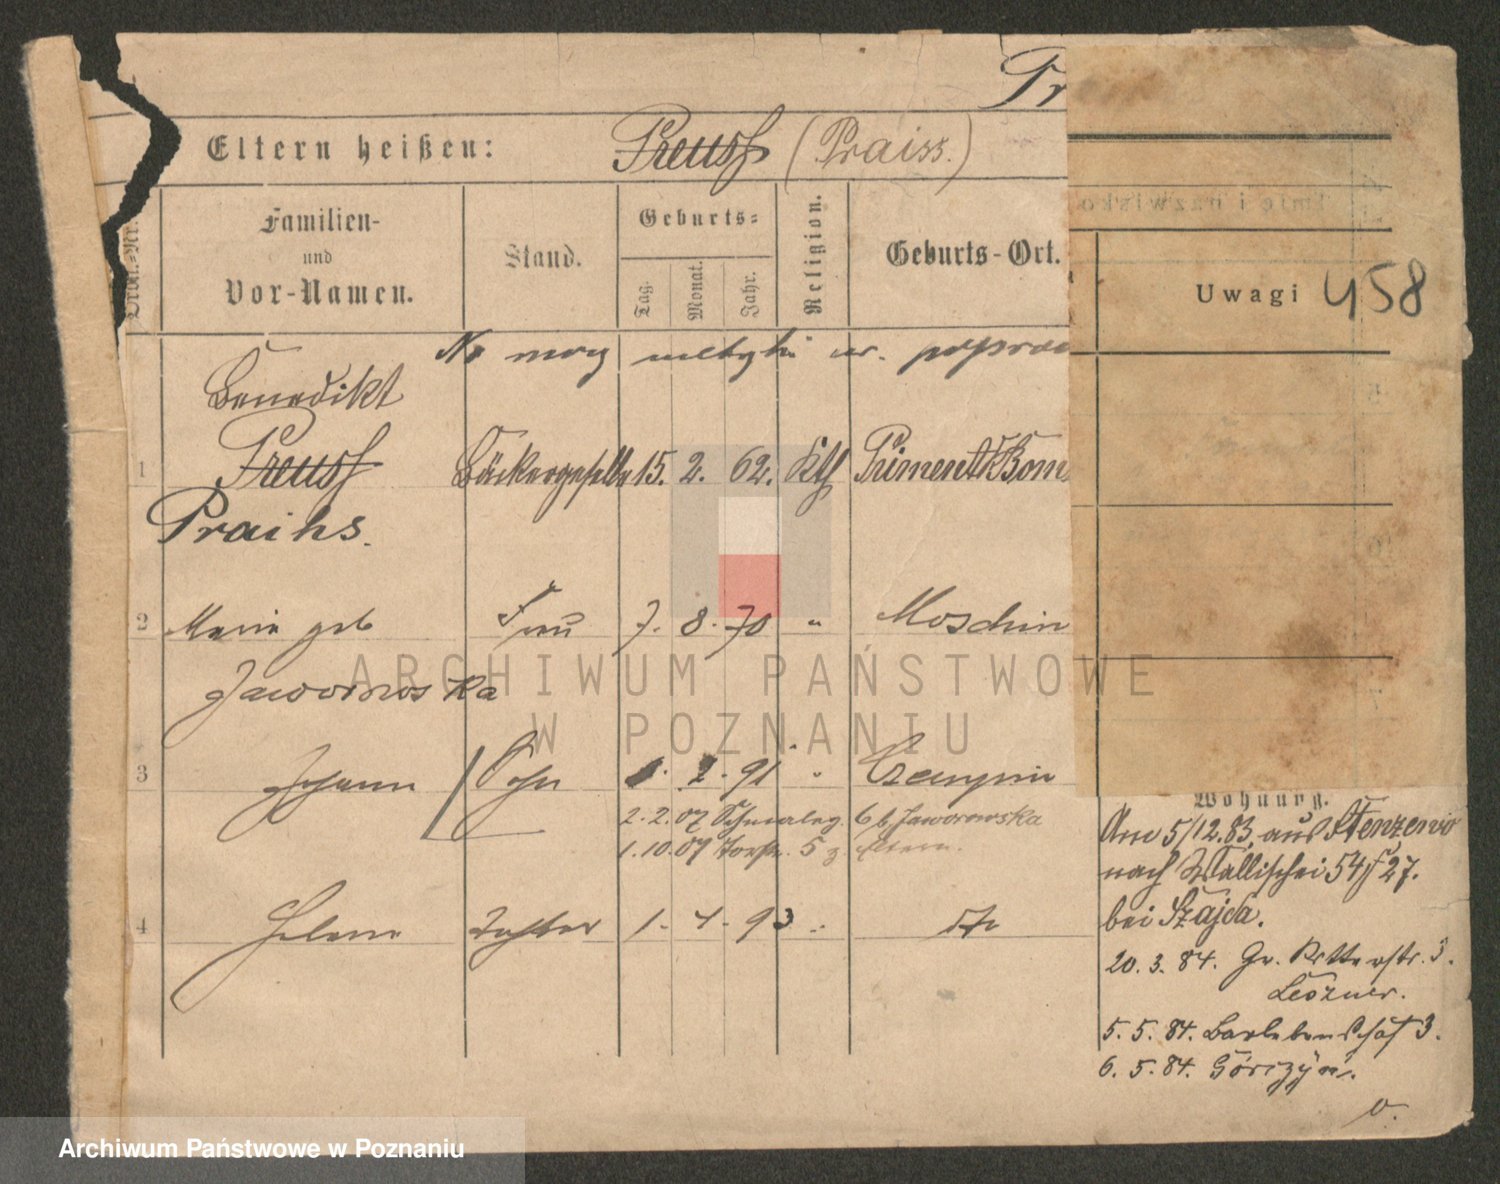 Pr
Eltern heißen: Preuss (Praiss.)
Imię i nazwisko
Ordn.-Nr.
Familien-
und
Vor-Namen.
Stand.
Geburts-
Tag.
Monat.
Jahr.
Religion.
Geburts-Ort.
Uwagi 458
Benedikt
1 Preuss Bäckergeselle 15. 2. 62. Kth Priment Kr Bom
Praihs.
2 Marie geb Frau 7. 8. 70 " Moschin
Jaworowska
3 Johann Sohn 1. 2. 91 " Czempin
2.2.07 6 b. Jaworowska
1.10.07 5 z Eltern.
4 Helene Tochter 1. 4. 93 " dto
Wohnung.
Am 5/12.83. aus Stenzewo
nach Wallischei 54/ 27.
bei Szajda.
20. 3. 84. Gr. Ritterstr. 3.
Leozner.
5. 5. 84. Barlebenshof 3.
6. 5. 84. Górczyn.
v.
ARCHIWUM PAŃSTWOWE
W POZNANIU
Archiwum Państwowe w Poznaniu